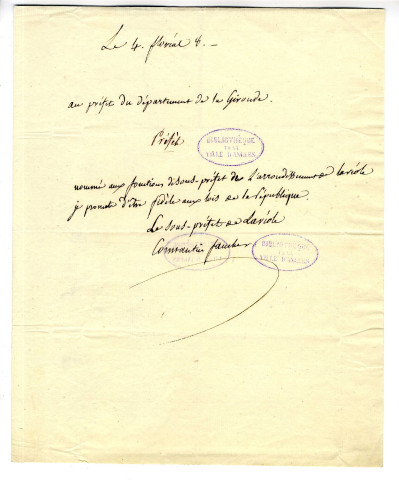 Le 4. floréal 8. —
au préfet du département de la Gironde.
Préfet
BIBLIOTHÈQUE
DE LA
VILLE D'ANGERS
nommé aux fonctions de sous-préfet de l'arrondissement de lareole
je promets d'être fidèle aux lois de la république.
Le sous-préfet de Lareole
Constantin faucher
BIBLIOTHÈQUE
VILLE D'ANGERS